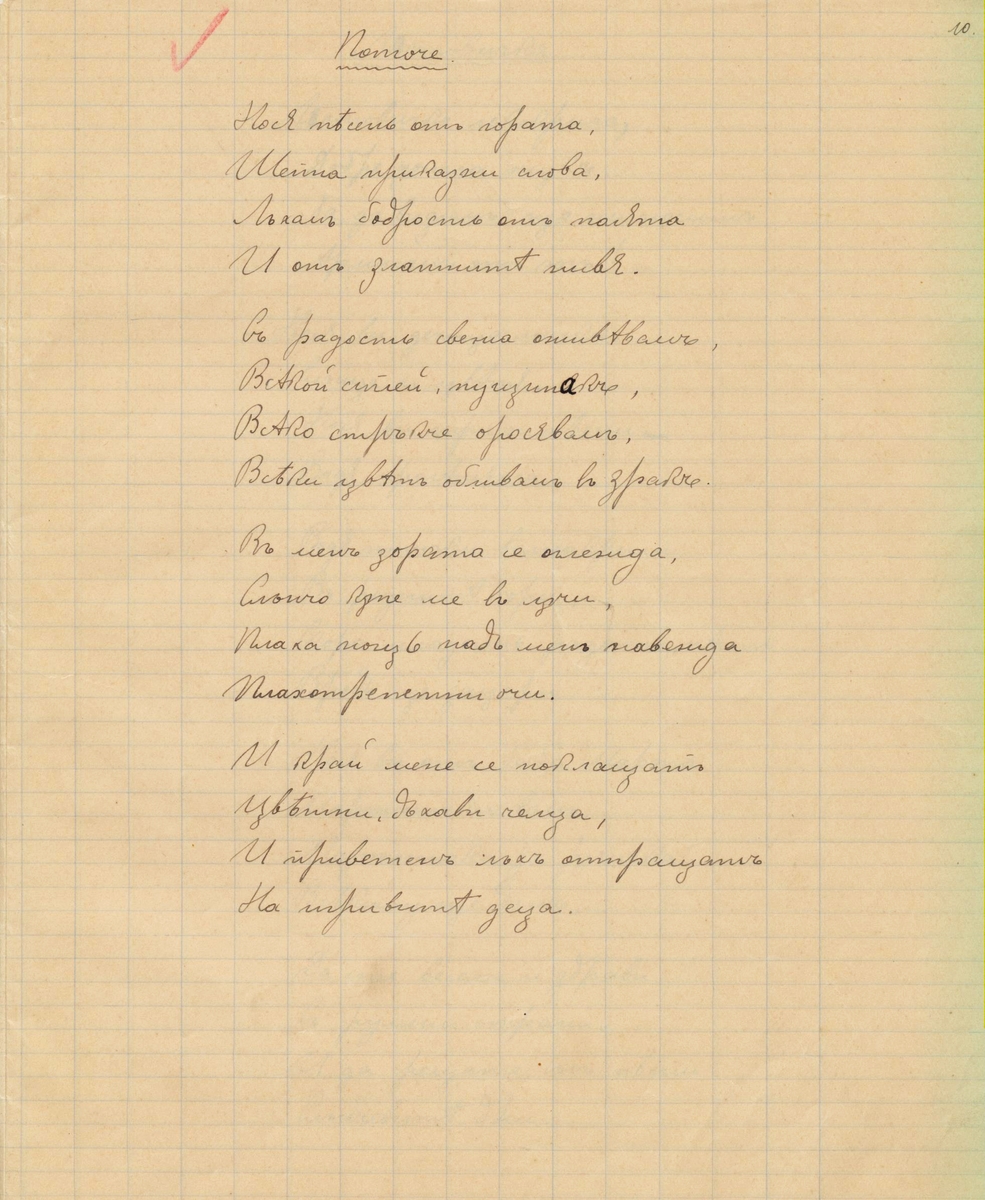 10.
Поточе.
Нося пѣсень отъ гората,
Шепна приказни слова,
Лъхамъ бодрость отъ полята
И отъ златнитѣ нивя.
Съ радость свежа оживѣвамъ,
Всѣкой стлей, пущинакъ,
Всѣко стръкче оросявамъ,
Всѣки цвѣтъ обливамъ въ зракъ.
Въ менъ зората се оглежда,
Слънчо къпе ме въ лучи,
Плаха нощь надъ менъ навежда
Плахотрепетни очи.
И край мене се поклащатъ
Цвѣтни, дъхави челца,
И приветенъ лъхъ отпращатъ
На игривитѣ деца.